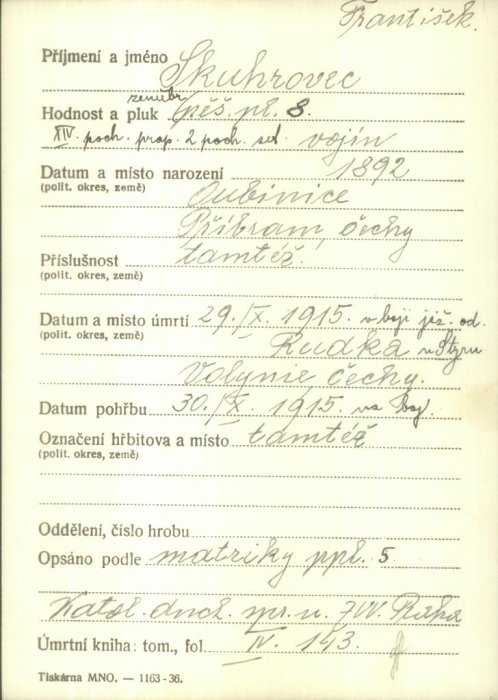 František.
Příjmení a jméno Skuhrovec
zeměbr.
Hodnost a pluk pěš. pl. 8.
XIV. poch. prap. 2 poch. set. vojín
Datum a místo narození 1892
(polit. okres, země) Oubinice
Příbram, čechy
Příslušnost tamtéž.
(polit. okres, země)
Datum a místo úmrtí 29./X. 1915. v boji již. od.
(polit. okres, země) Rudka u Styru
Volynie, čechy.
Datum pohřbu 30./X. 1915. na boj.
Označení hřbitova a místo tamtéž
(polit. okres, země)
Oddělení, číslo hrobu
Opsáno podle matriky ppl. 5.
Katol. duch. spr. u. ZVV. Praha
Úmrtní kniha: tom., fol. IV. 143.
Tiskárna MNO. — 1163-36.